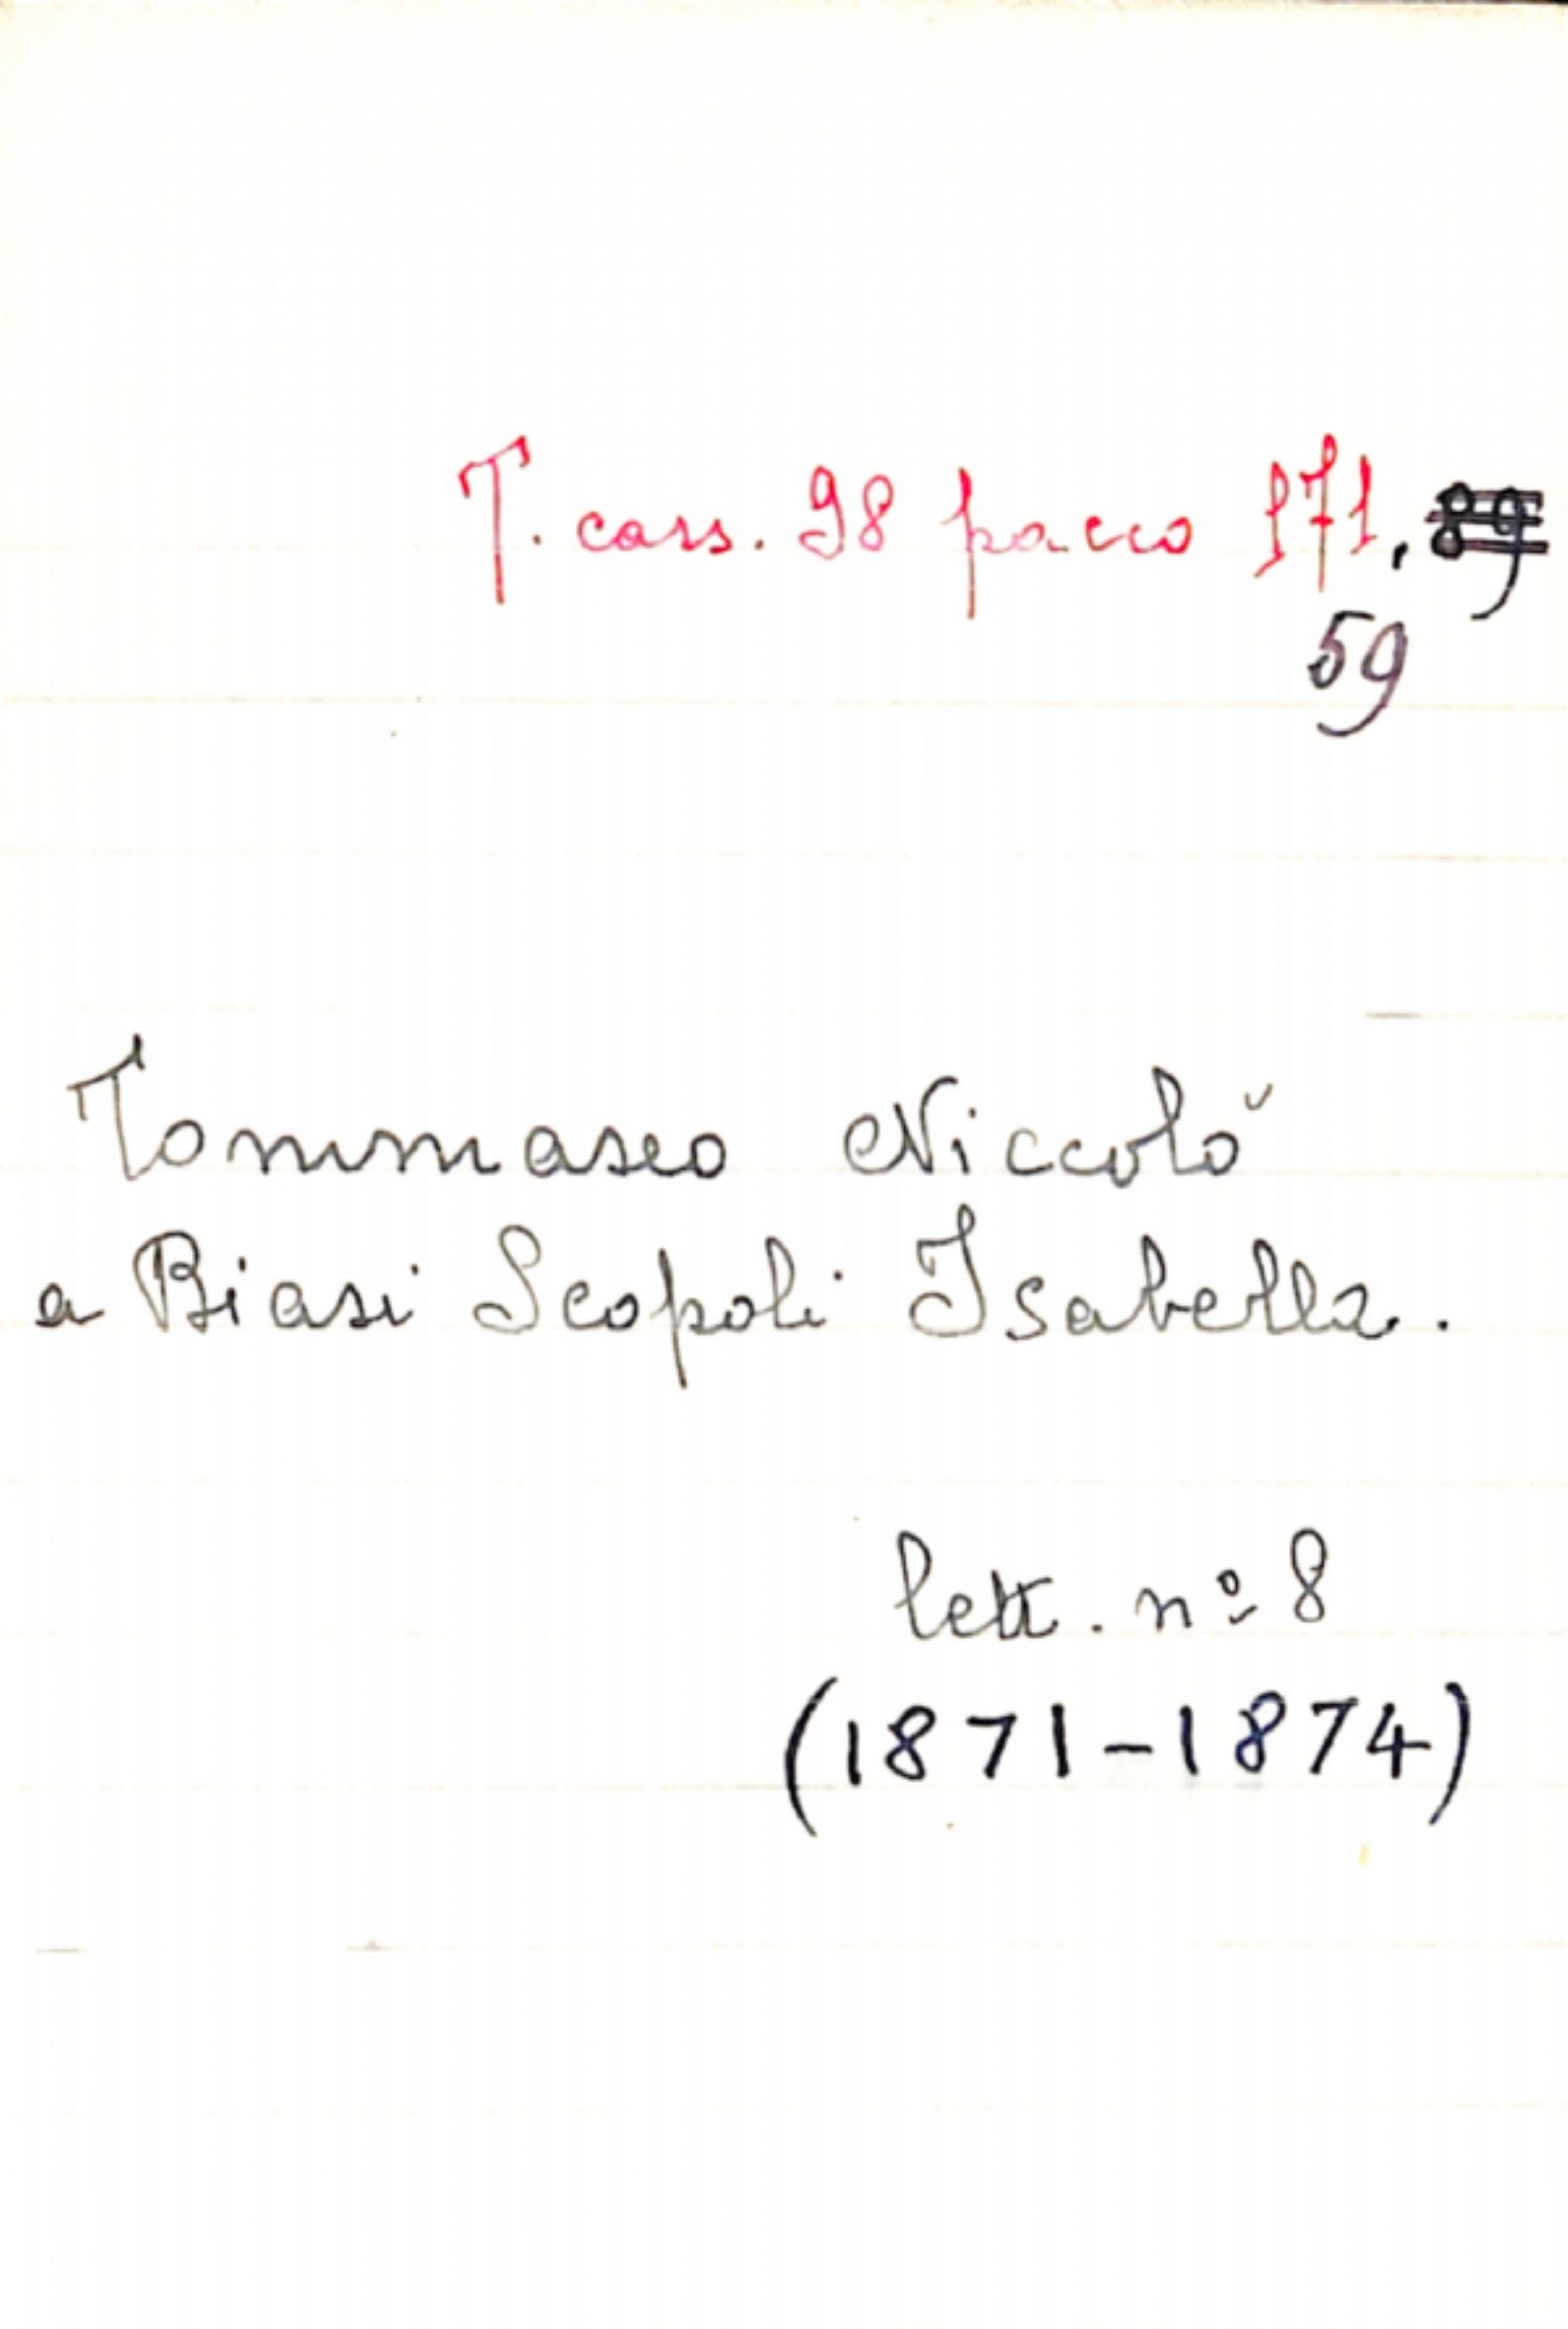 T. cass. 98 pacco 171, 89
59
Tommaseo Niccolò
a Biasi Scopoli Isabella.
lett. nº 8
(1871-1874)